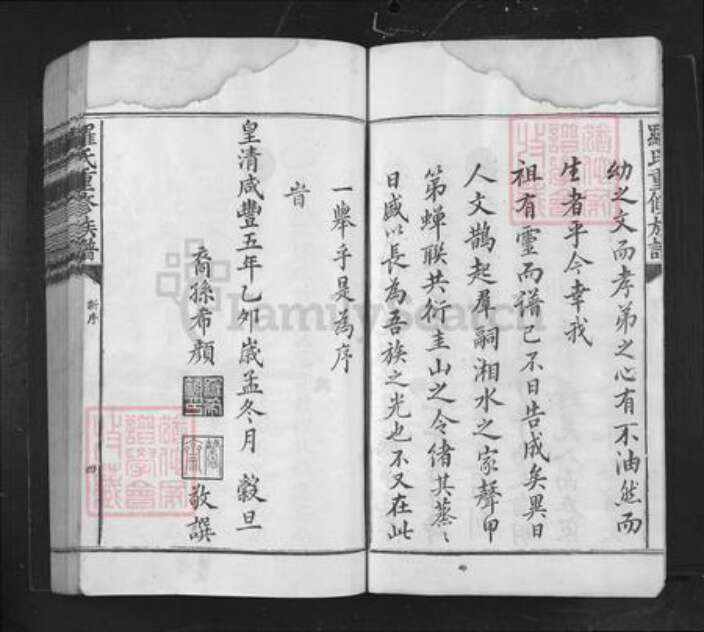 羅氏重修族譜
幼之文而孝弟之心有不油然而
生者乎今幸我
祖有靈而譜已不日告成矣異日
人文鵲起羣嗣湘水之家聲甲
第蟬聯共衍圭山之令緒其蒸〻
日盛以長為吾族之光也不又在此
一舉乎是為序
旹
皇清咸豐五年乙夘嵗孟冬月 穀旦
裔孫希顏 敬譔
羅氏重修族譜
新序
四
FamilySearch